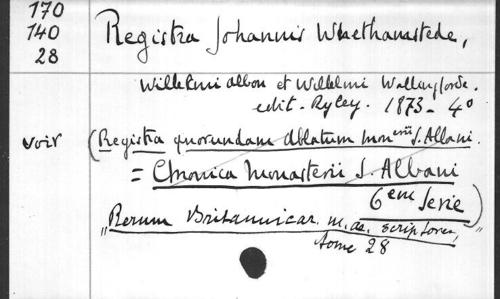 170
140
28
Registra Johannis Whethamstede,
Willelmi Albon et Willelmi Wallingforde.
edit. Ryley. 1873 - 4º
voir (Registra quorundam Abbatum monerii S. Albani.
= Chronica Monasterii S. Albani
6eme Serie)
"Rerum Britannicar. m. ae. scriptores,"
tome 28